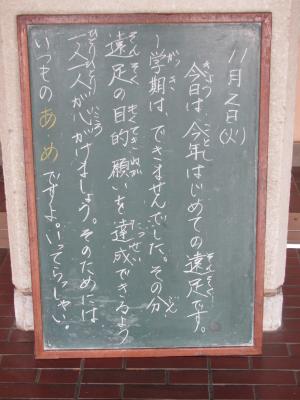 11月2日(火)
今日は、今年はじめての遠足です。
1学期は、できませんでした。その分
遠足の目的、願いを達成できるよう
一人一人が心がけましょう。そのためには
いつものあめですよ。いってらっしゃい。